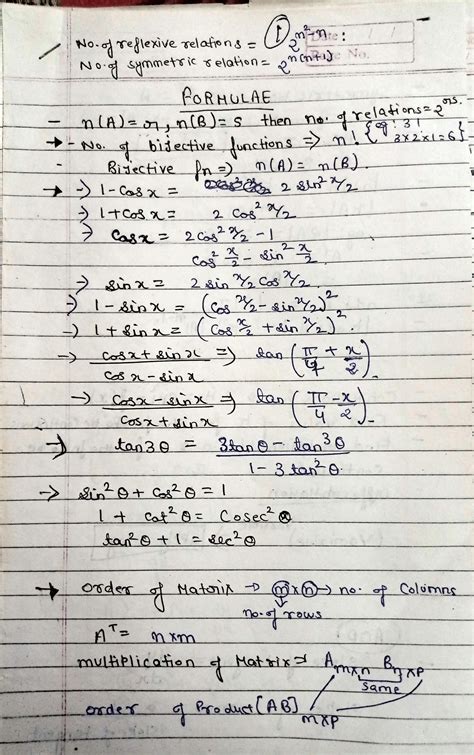 ①
Date : / / :
No. of reflexive relations = 2^(n²-n)
No. of symmetric relation = 2^(n(n+1)) No.
FORMULAE
- n(A) = r, n(B) = s then no. of relations = 2^(rs).
→ - No. of bijective functions => n! {eg: 3! 3×2×1=6}
- Bijective fn => n(A) = n(B)
→ -) 1 - Cos x = 2 sin² x/2
-) 1 + Cos x = 2 Cos² x/2
-) Cos x = 2 Cos² x/2 - 1
Cos² x/2 - sin² x/2
-) sin x = 2 sin x/2 Cos x/2
-) 1 - sin x = (Cos x/2 - sin x/2)²
-) 1 + sin x = (Cos x/2 + sin x/2)²
-> (cos x + sin x)/(Cos x - sin x) => tan (π/4 + x/2)
-> (Cos x - sin x)/(Cos x + sin x) => tan (π/4 - x/2)
-> tan 3θ = (3 tan θ - tan³ θ)/(1 - 3 tan² θ)
-> sin² θ + Cos² θ = 1
1 + Cot² θ = Cosec² θ
tan² θ + 1 = sec² θ
→ order of Matrix → m×n → no. of Columns
no. of rows
A^T = n×m
multiplication of Matrix => A m×n B n×p
same
order of Product [AB] m×p